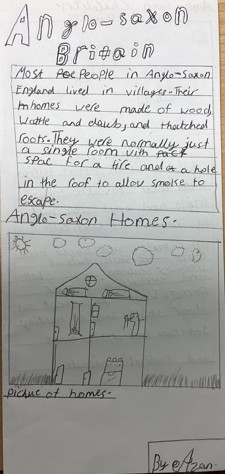 Anglo-saxon
Britain
Most People in Anglo-Saxon
England lived in villages. Their
homes were made of wood,
Wattle and dawb, and thatched
roofs. They were normally just
a single room with
spac for a fire and a hole
in the roof to allow smoke to
escape.
Anglo-saxon Homes.
picture of homes.
By Azan.